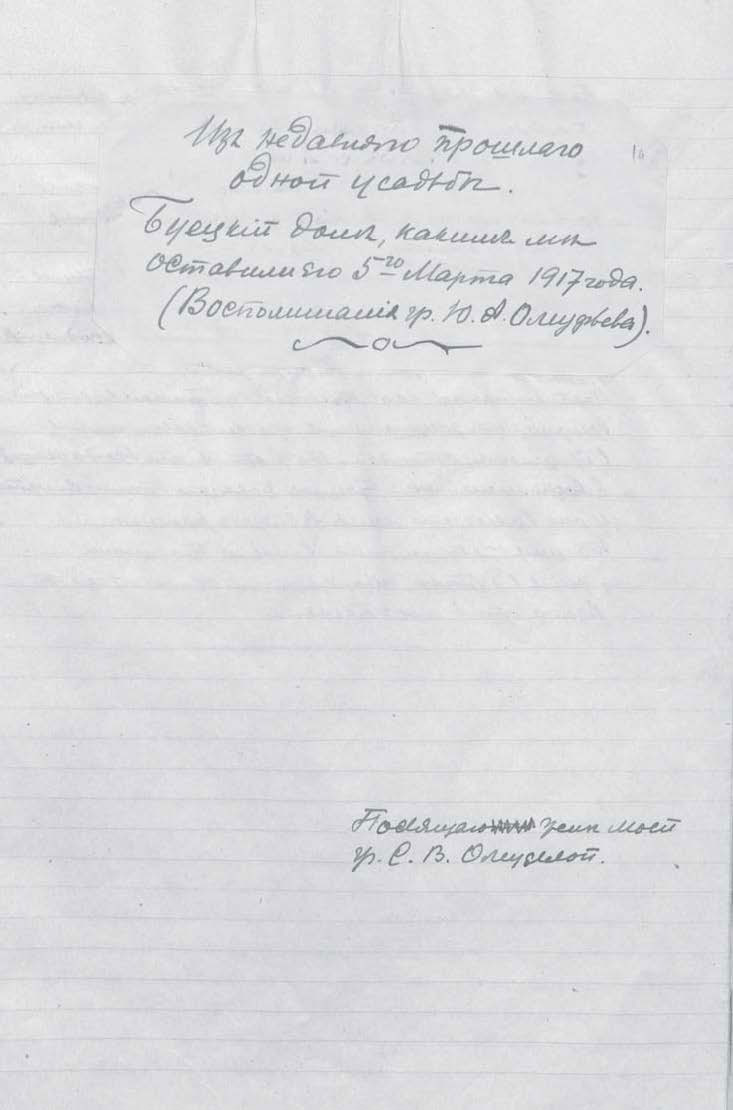 Изъ недавняго прошлаго
одной усадьбы.
Буецкій домъ, какимъ мы
оставили его 5го Марта 1917 года.
(Воспоминанія гр. Ю. А. Олсуфьева).
Посвящаю женѣ моей
гр. С. В. Олсуфьевой.